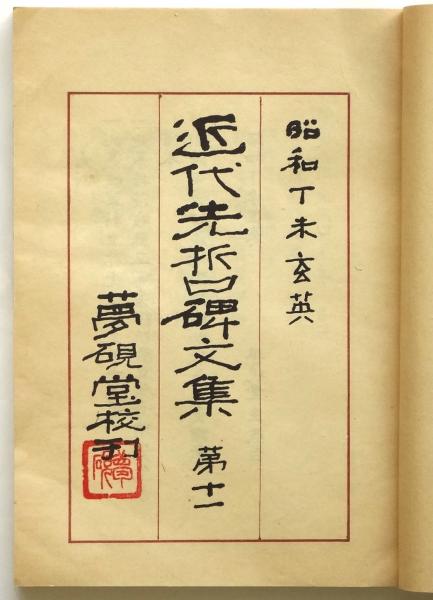 昭和丁未玄英
近代先哲碑文集 第十一
夢硯堂校刊